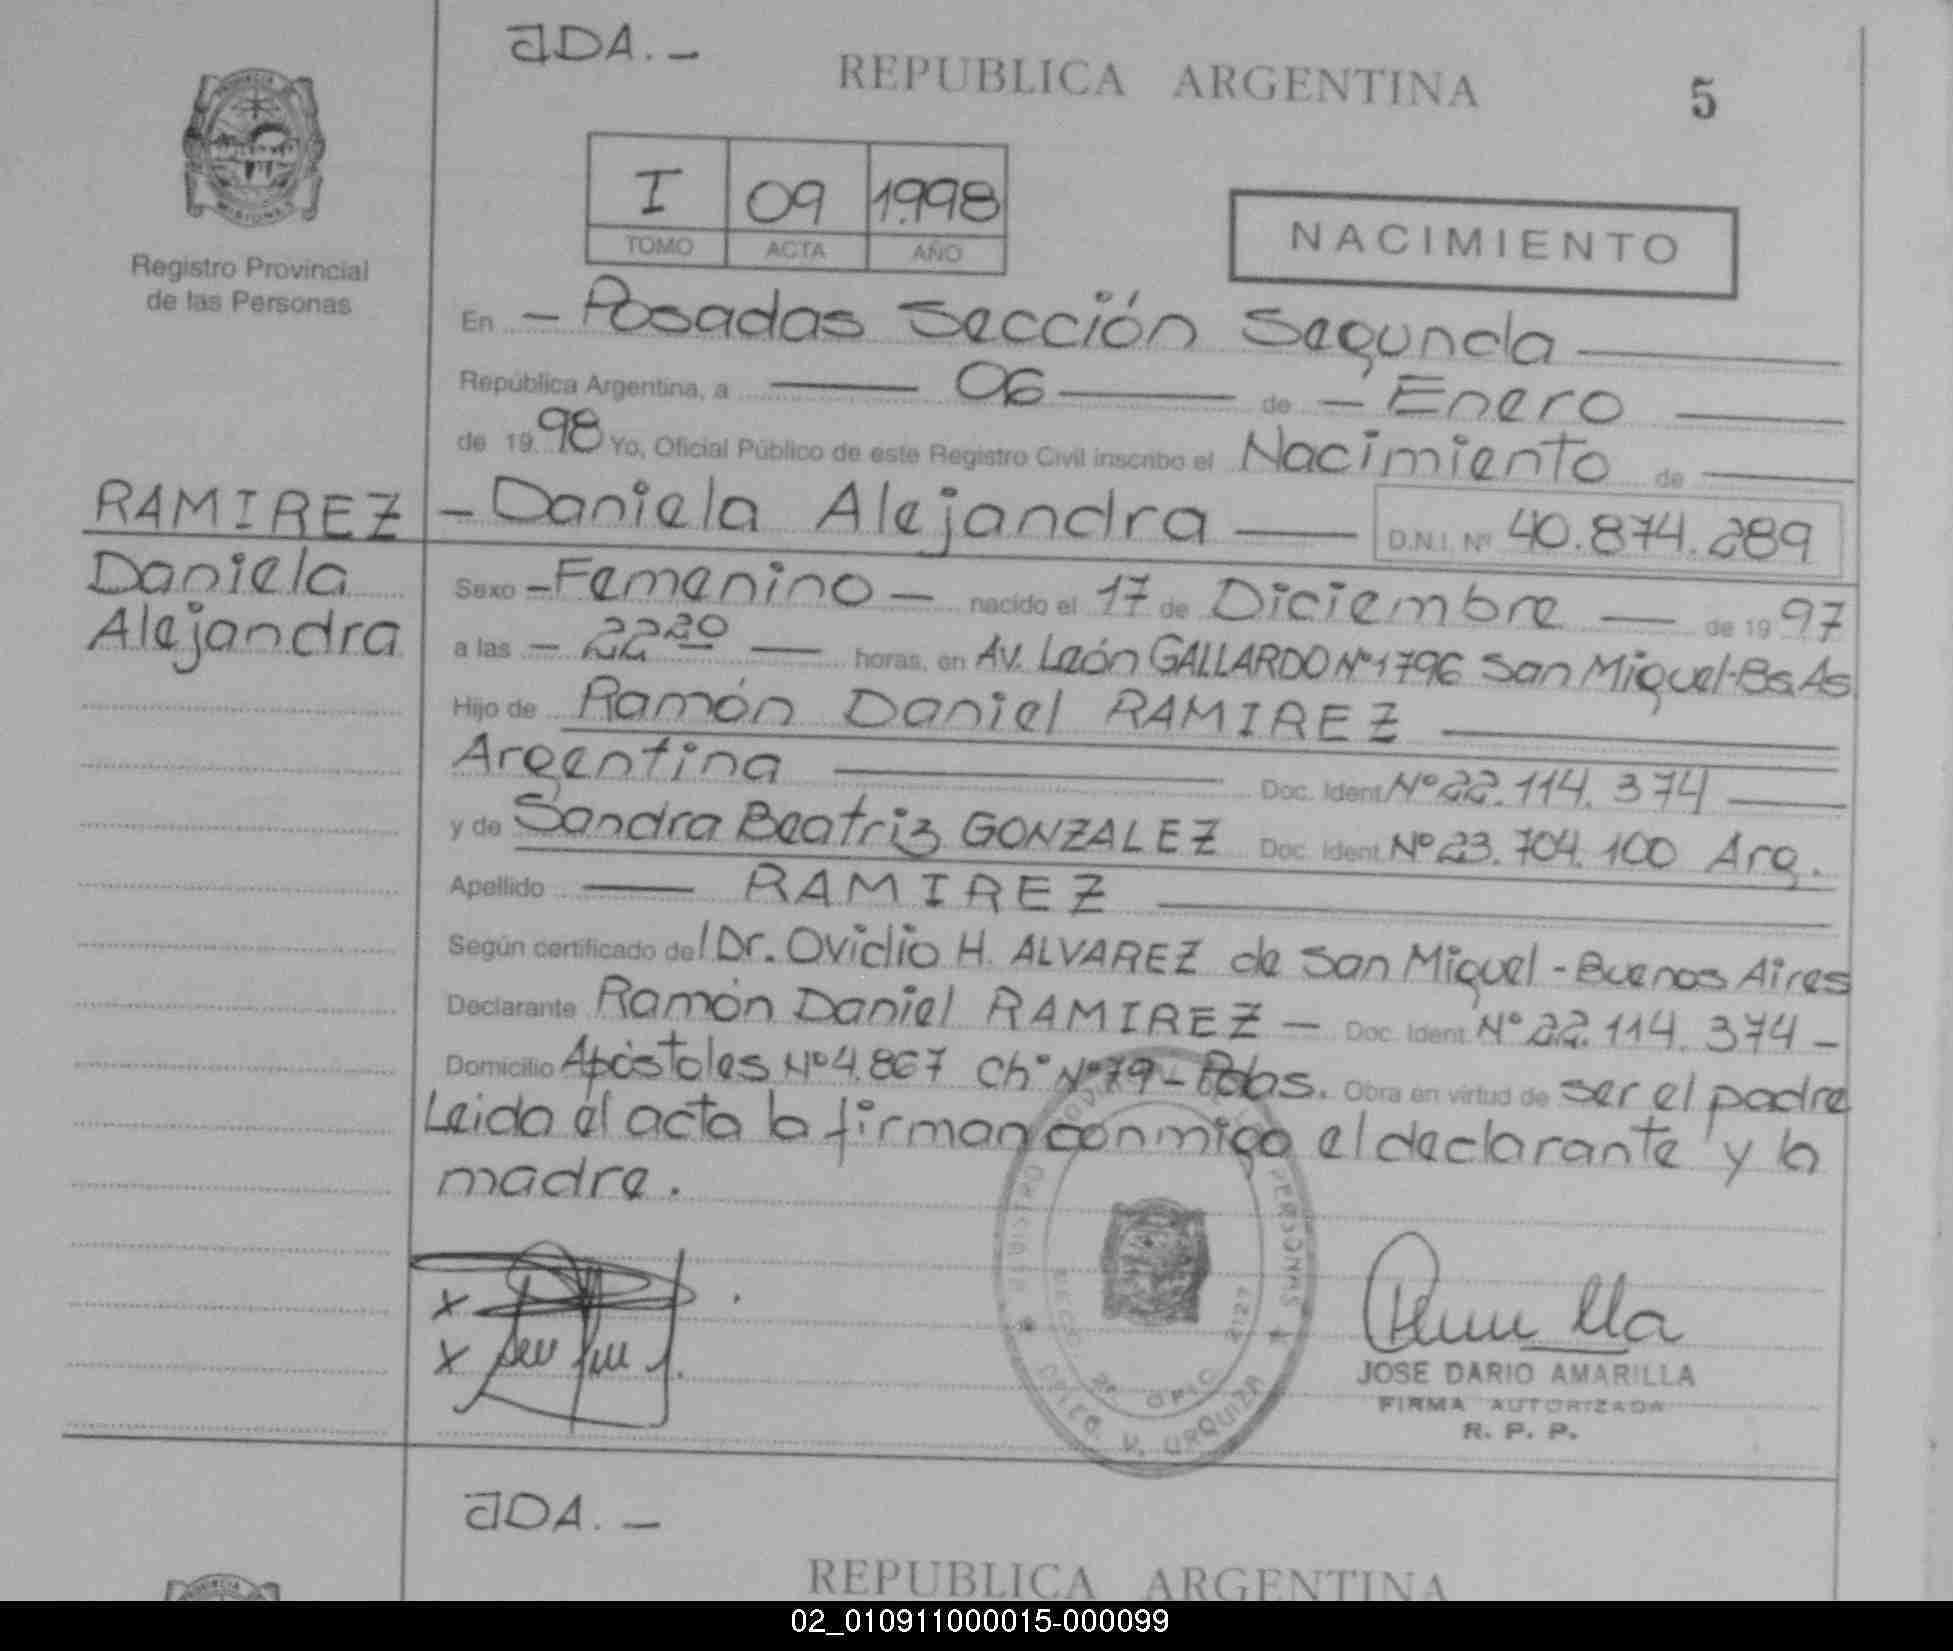 JDA.-
REPUBLICA ARGENTINA
5
I 09 1998
TOMO ACTA AÑO
NACIMIENTO
Registro Provincial
de las Personas
En - Posadas Sección Segunda
República Argentina, a 06 de - Enero
de 19 98 Yo, Oficial Público de este Registro Civil inscribo el Nacimiento de
RAMIREZ
Daniela
Alejandra
- Daniela Alejandra D.N.I. Nº 40.874.289
Sexo - Femenino - nacido el 17 de Diciembre de 19 97
a las - 22 20 horas, en Av. León GALLARDO Nº 1796 San Miguel-Bs As
Hijo de Ramón Daniel RAMIREZ
Argentina Doc. Ident. Nº 22.114.374
y de Sandra Beatriz GONZALEZ Doc. Ident. Nº 23.704.100 Arg.
Apellido RAMIREZ
Según certificado del Dr. Ovidio H. ALVAREZ de San Miguel - Buenos Aires
Declarante Ramón Daniel RAMIREZ - Doc. Ident. Nº 22.114.374 -
Domicilio Apóstoles Nº 4.867 Chº Nº 79 - Pdas. Obra en virtud de ser el padre
Leida el acta la firman conmigo el declarante y la
madre.
x
x
JOSE DARIO AMARILLA
FIRMA AUTORIZADA
R. P. P.
PERSONAS
V. URQUIZA
JDA.-
REPUBLICA ARGENTINA
02_010911000015-000099